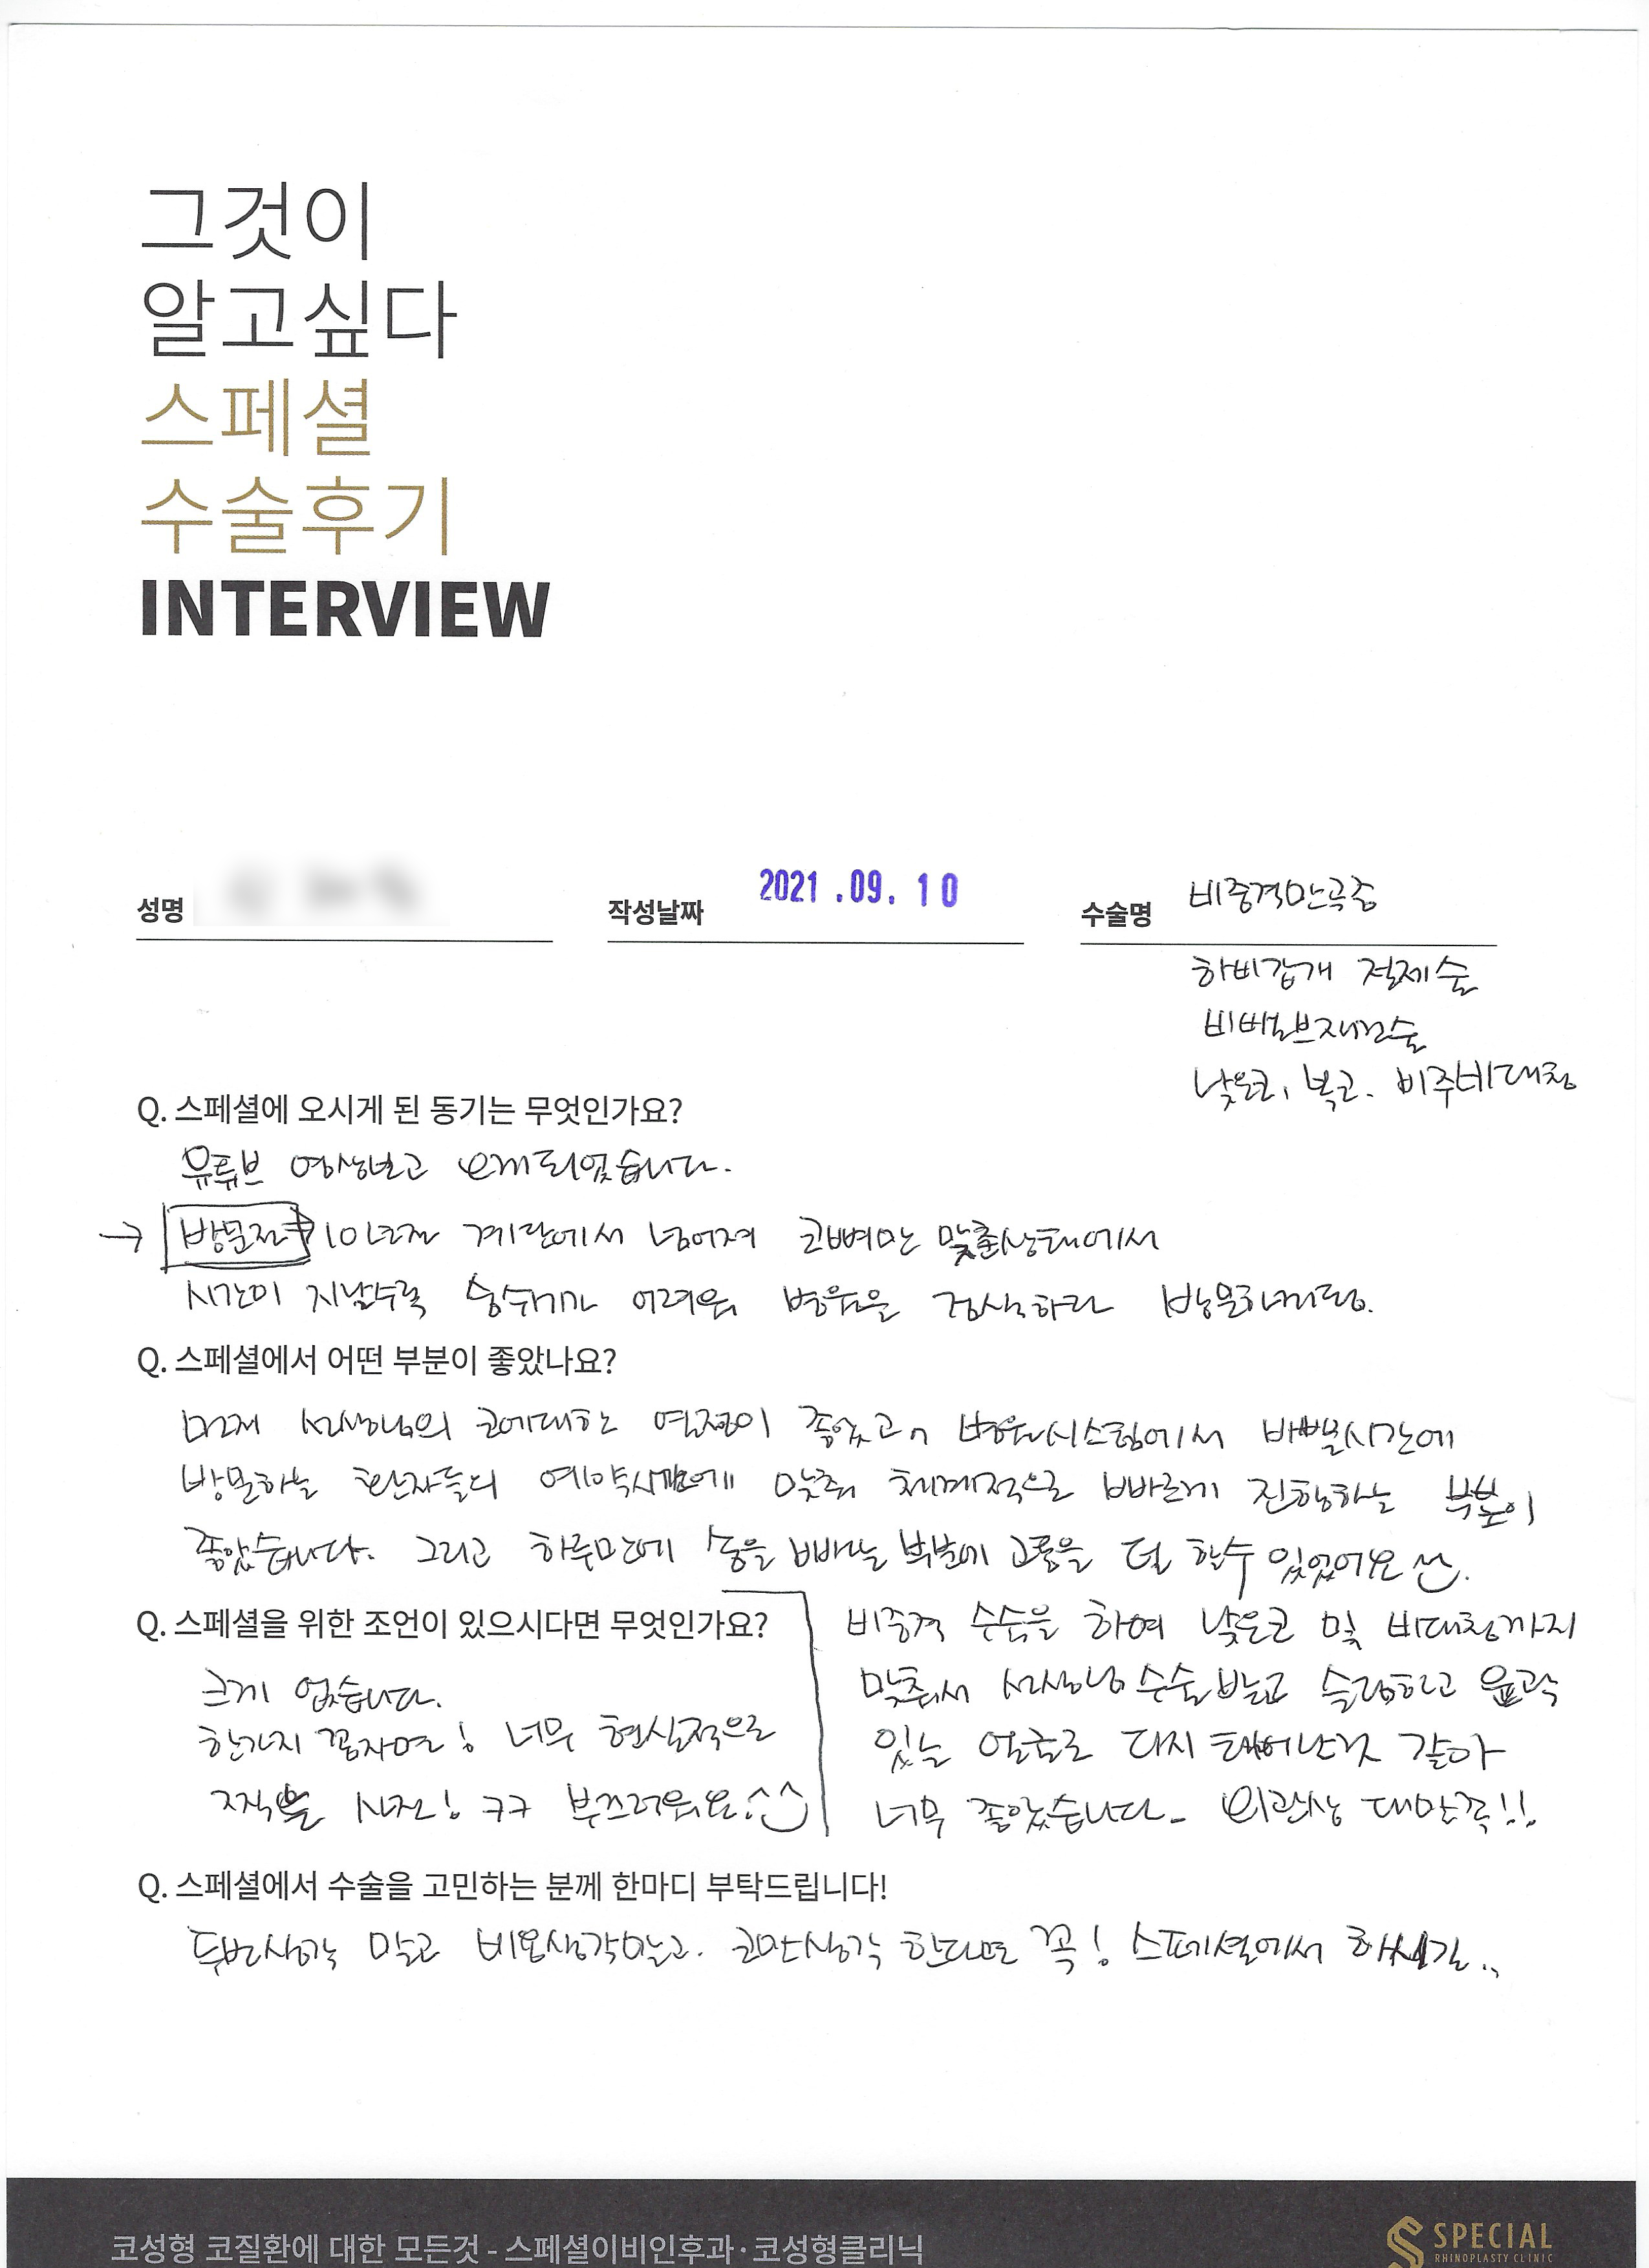 그것이
알고싶다
스페셜
수술후기
INTERVIEW
성명
작성날짜 2021.09.10
수술명 비중격만곡증
하비갑개 절제술
비밸브재건술
낮은코, 복코, 비주비대칭
Q. 스페셜에 오시게 된 동기는 무엇인가요?
유튜브 영상보고 오게되었습니다.
→ 방문전 10년전 계단에서 넘어져 코뼈만 맞춘상태에서
시간이 지날수록 숨쉬기가 어려워 병원을 검색하다 방문하게됨.
Q. 스페셜에서 어떤 부분이 좋았나요?
먼저 선생님의 코에대한 열정이 좋았고, 병원시스템에서 바쁜시간에
방문하는 환자들의 예약시간에 맞춰 체계적으로 빠르게 진행하는 부분이
좋았습니다. 그리고 하루만에 솜을 빼내는 부분에 고통을 덜 할수 있었어요 ^^.
Q. 스페셜을 위한 조언이 있으시다면 무엇인가요?
크게 없습니다.
한가지 꼽자면! 너무 현실적으로
직찍을 사진! ㅋㅋ 부끄러워요^^
비중격 수술을 하여 낮은코 및 비대칭까지
맞춰서 선생님 수술받고 슬림하고 윤곽
있는 얼굴로 다시 태어난것 같아
너무 좋았습니다. 외관상 대만족!!
Q. 스페셜에서 수술을 고민하는 분께 한마디 부탁드립니다!
두번생각 말고 비용생각말고. 코만생각 한다면 꼭! 스페셜에서 하시길..
코성형 코질환에 대한 모든것 - 스페셜이비인후과·코성형클리닉
SPECIAL
RHINOPLASTY CLINIC